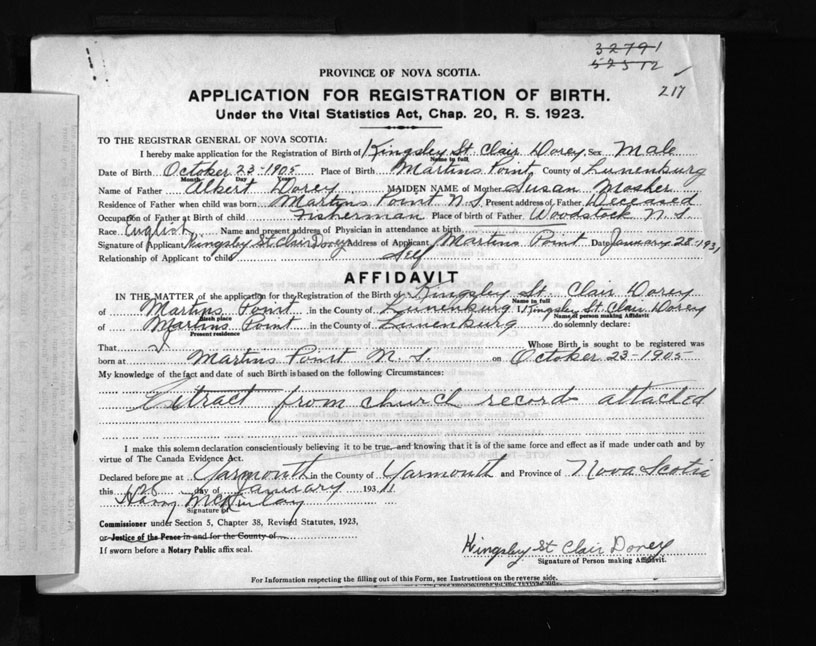 32791
52512
217
PROVINCE OF NOVA SCOTIA.
APPLICATION FOR REGISTRATION OF BIRTH.
Under the Vital Statistics Act, Chap. 20, R. S. 1923.
TO THE REGISTRAR GENERAL OF NOVA SCOTIA:
I hereby make application for the Registration of Birth of Kingsley St. Clair Dorey Sex Male
Name in full
Date of Birth October 23-1905 Place of Birth Martins Point County of Lunenburg
Month Day Year
Name of Father Albert Dorey MAIDEN NAME of Mother Susan Mosher
Residence of Father when child was born Martins Point N.S. Present address of Father Deceased
Occupation of Father at Birth of child Fisherman Place of birth of Father Woodstock N.S.
Race English Name and present address of Physician in attendance at birth
Signature of Applicant Kingsley St Clair Dorey Address of Applicant Martins Point Date January 28-1931
Relationship of Applicant to child Self
AFFIDAVIT
IN THE MATTER of the application for the Registration of the Birth of Kingsley St. Clair Dorey
Name in full
of Martins Point in the County of Lunenburg I Kingsley St. Clair Dorey
Birth place Name of person making Affidavit
of Martins Point in the County of Lunenburg do solemnly declare:
Present residence
That I Whose Birth is sought to be registered was
born at Martins Point N.S. on October 23-1905
My knowledge of the fact and date of such Birth is based on the following Circumstances:
Extract from church records attached
I make this solemn declaration conscientiously believing it to be true, and knowing that it is of the same force and effect as if made under oath and by
virtue of The Canada Evidence Act.
Declared before me at Yarmouth in the County of Yarmouth and Province of Nova Scotia
this day of January 1931
Harry McKinlay
Signature of
Commissioner under Section 5, Chapter 38, Revised Statutes, 1923,
or Justice of the Peace in and for the County of
If sworn before a Notary Public affix seal.
Kingsley St Clair Dorey
Signature of Person making Affidavit.
For Information respecting the filling out of this Form, see Instructions on the reverse side.